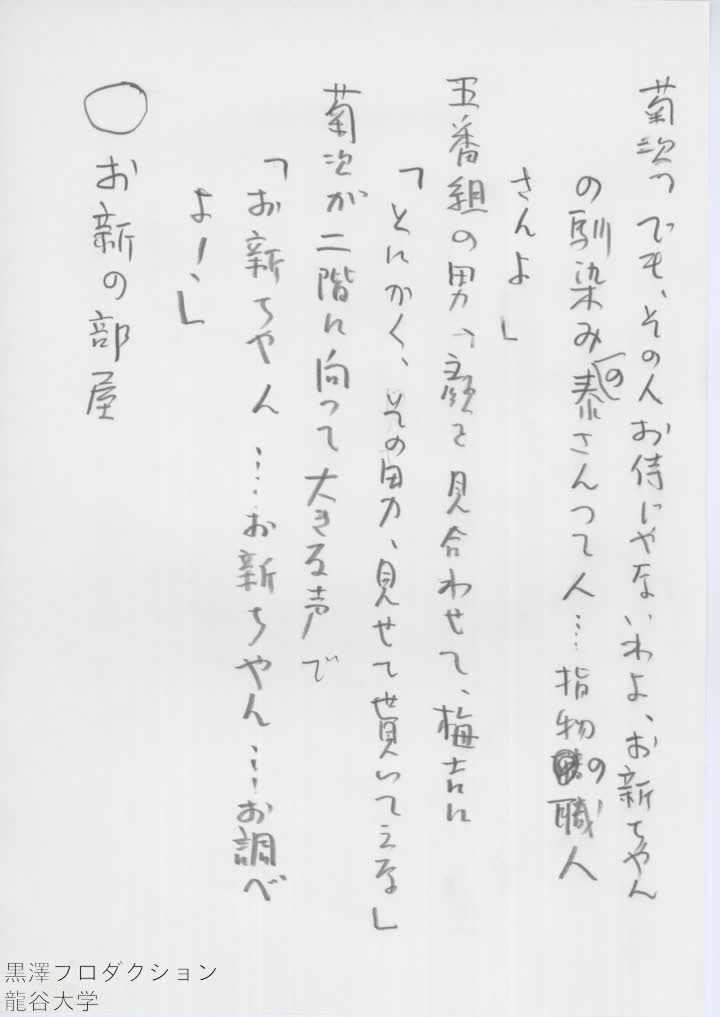 菊次「でも、その人お侍じゃないわよ、お新ちゃん
の馴染みの泰さんって人…指物の職人
さんよ」
五番組の男、顔を見合わせて、梅吉に
「とにかく、その男、見せて貰いてえな」
菊次が二階に向って大きな声で
「お新ちゃん……お新ちゃん…お調べ
よー、」
○お新の部屋
黒澤プロダクション
龍谷大学